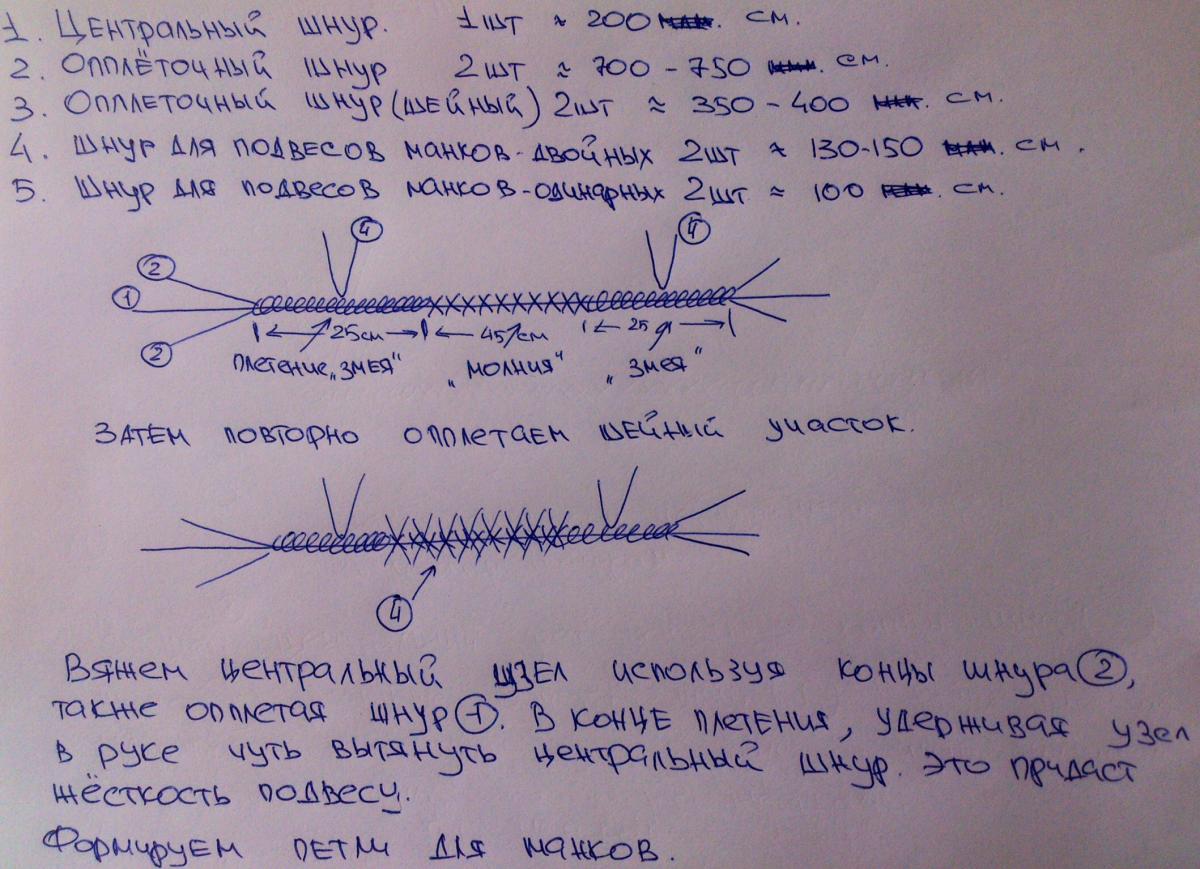 1. Центральный шнур. 1шт ≈ 200 см.
2. Оплёточный шнур 2шт ≈ 700 - 750 см.
3. Опплеточный шнур (шейный) 2шт ≈ 350 - 400 см.
4. Шнур для подвесов манков-двойных 2шт ≈ 130-150 см.
5. Шнур для подвесов манков-одинарных 2шт ≈ 100 см.
4 4
2
1
25см 45 см 25
2
плетение „змея“ „молния“ „змея“
Затем повторно опплетаем шейный участок.
4
Вяжем центральный узел используя концы шнура 2,
также опплетая шнур 1. В конце плетения, удерживая узел
в руке чуть вытянуть центральный шнур. Это придаст
жёсткость подвесу.
Формируем петли для манков.